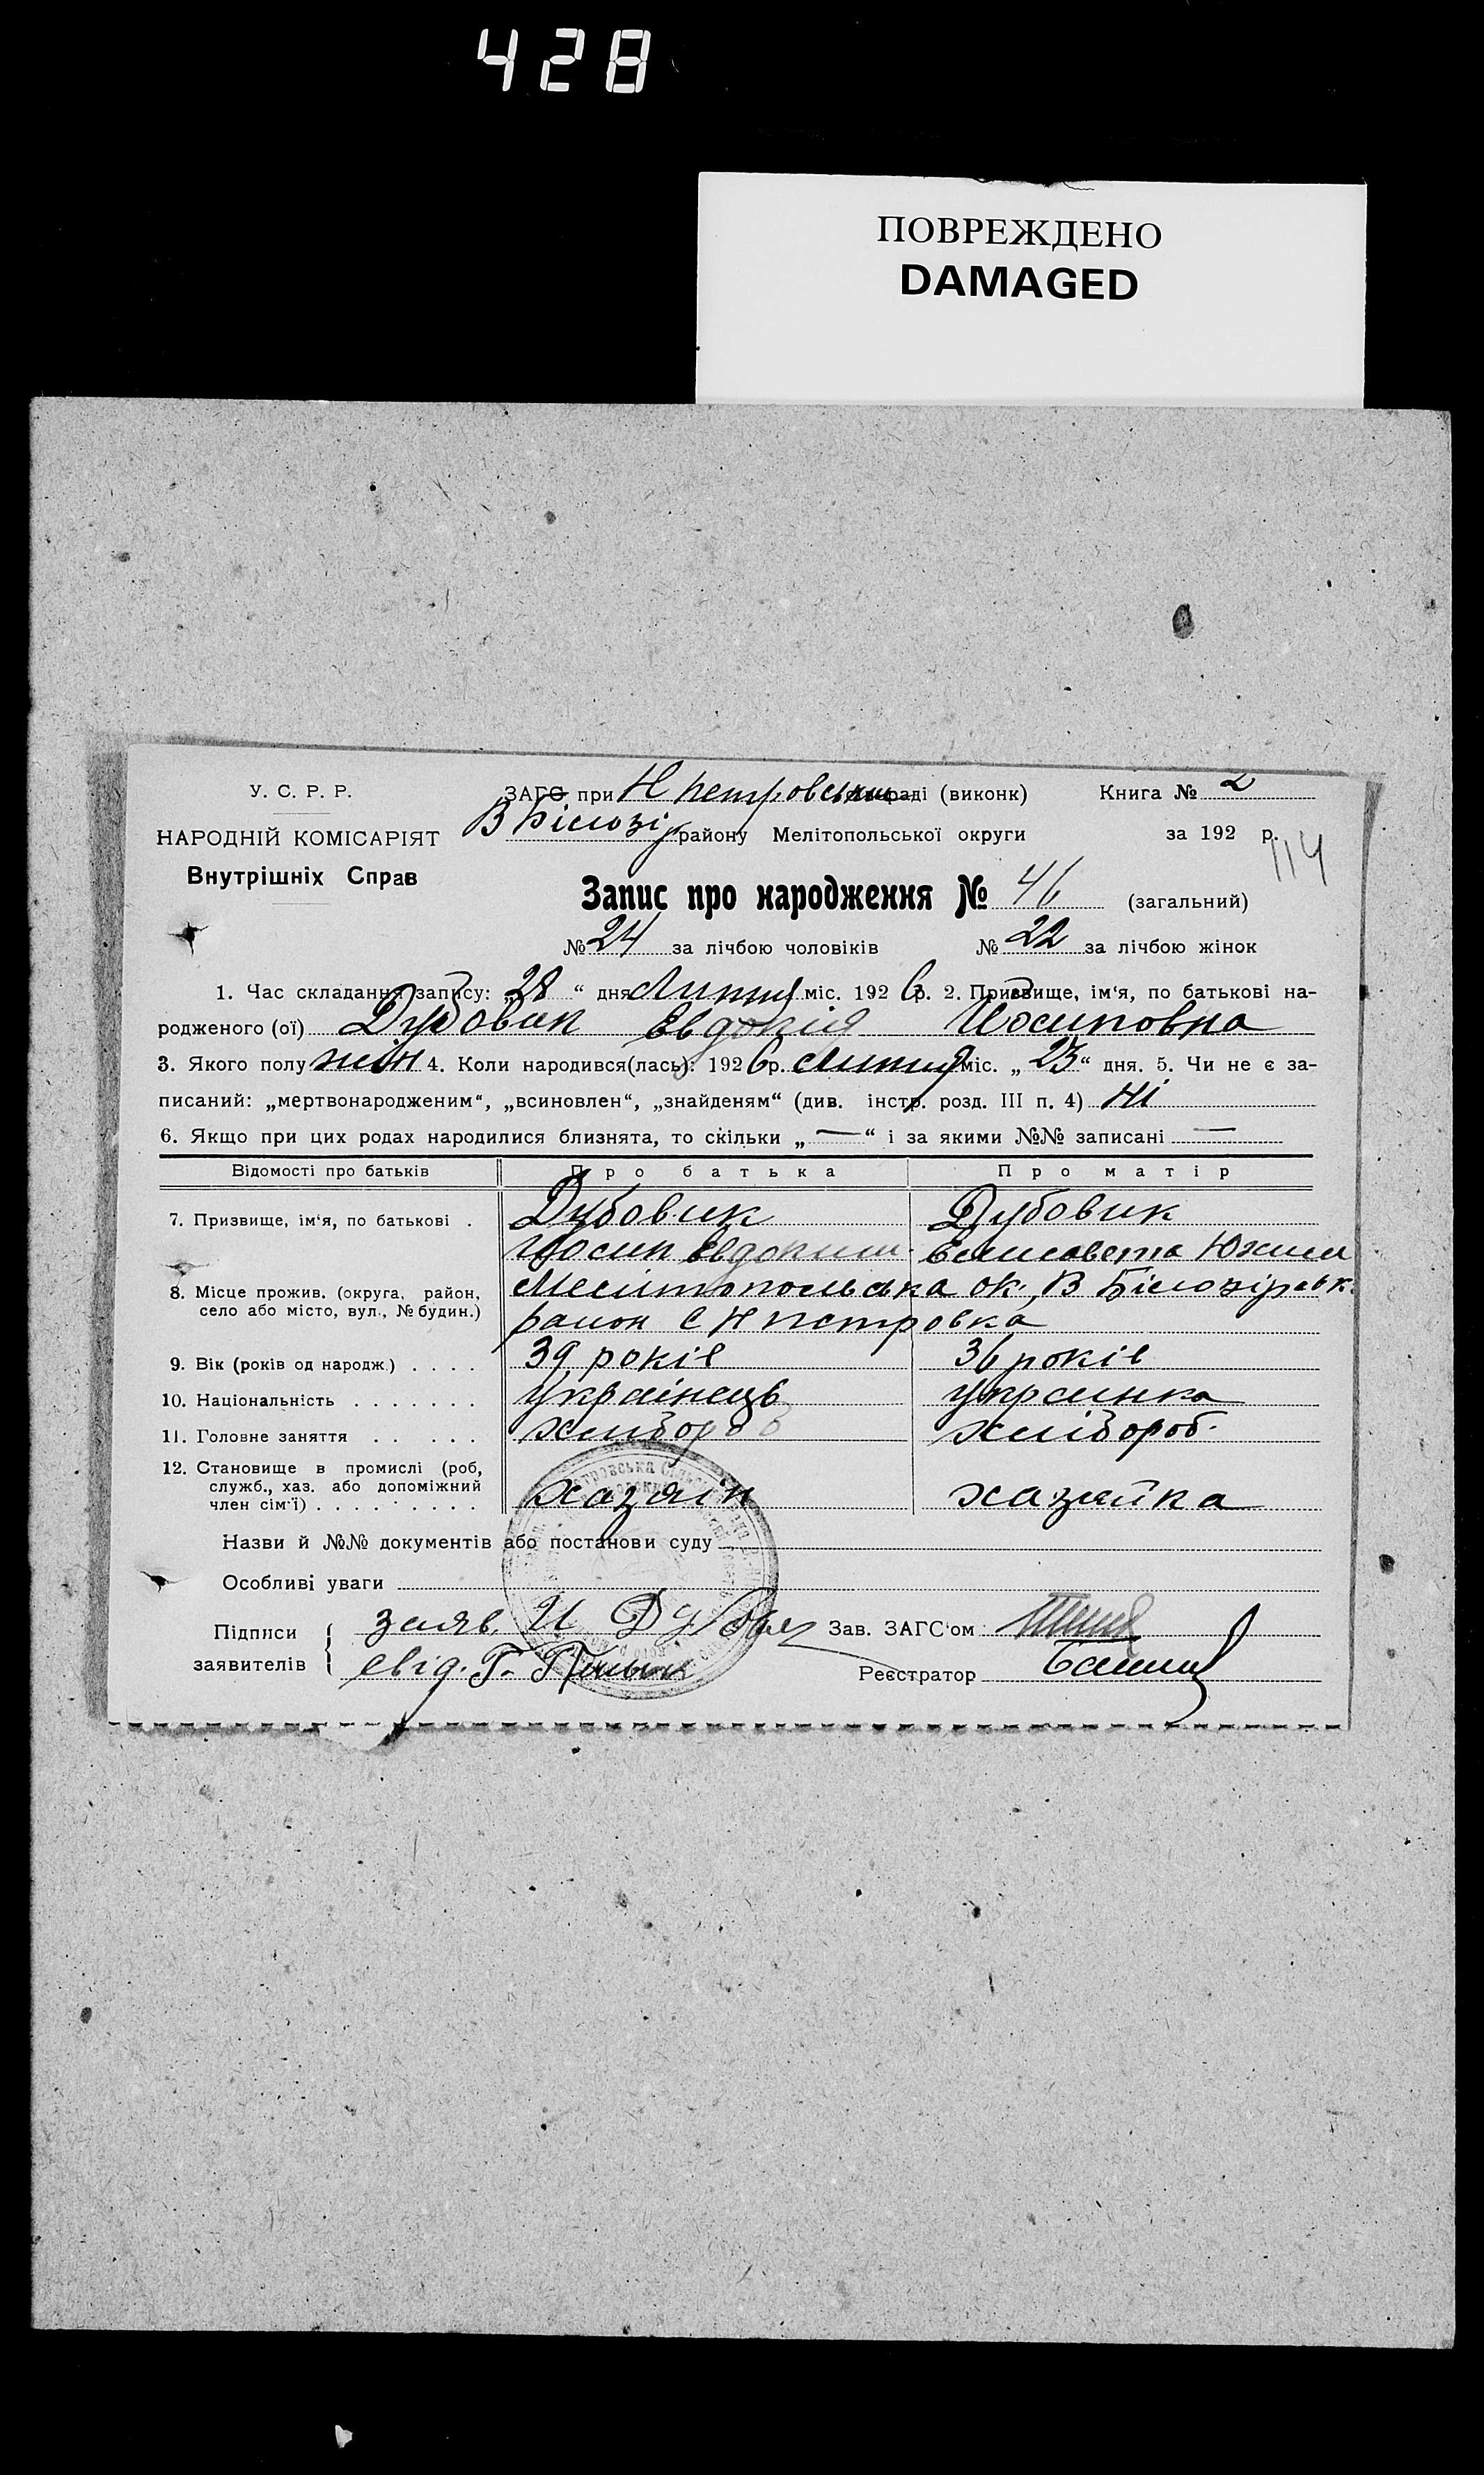 428
ПОВРЕЖДЕНО
DAMAGED
У. С. Р. Р.
НАРОДНІЙ КОМІСАРІЯТ
Внутрішніх Справ
ЗАГС при Н Петровськ раді (виконк) Книга № 2
В Білозір району Мелітопольської округи за 192 р.
114
Запис про народження № 46 (загальний)
№ 24 за лічбою чоловіків № 22 за лічбою жінок
1. Час складання запису: „28“ дня Липня міс. 1926 р. 2. Призвище, ім‘я, по батькові на-
родженого (ої) Дубовик Евдокія Иосиповна
3. Якого полу жін 4. Коли народився(лась): 1926 р. Липня міс. „23“ дня. 5. Чи не є за-
писаний: „мертвонародженим“, „всиновлен“, „знайденям“ (див. інстр. розд. III п. 4) Ні
6. Якщо при цих родах народилися близнята, то скільки „—“ і за якими №№ записані —
Відомості про батьків Про батька Про матір
7. Призвище, ім‘я, по батькові . Дубовик Дубовик
Иосип Евдоким. Елисавета
8. Місце прожив. (округа, район, село або місто, вул., № будин.) Мелітопольська ок., В Білозірськ.
район С Н Петровка
9. Вік (років од народж.) . . . . 39 років 36 років
10. Національність . . . . . . . Українець Украинка
11. Головне заняття . . . . . . хлібороб хлібороб.
12. Становище в промислі (роб, служб., хаз. або допоміжний член сім‘ї) . . . . . . . . . хазяін хазяйка
Назви й №№ документів або постанови суду
Особливі уваги
Підписи заявителів { заяв. И Дубовик Зав. ЗАГС‘ом
свід. Г. Реєстратор